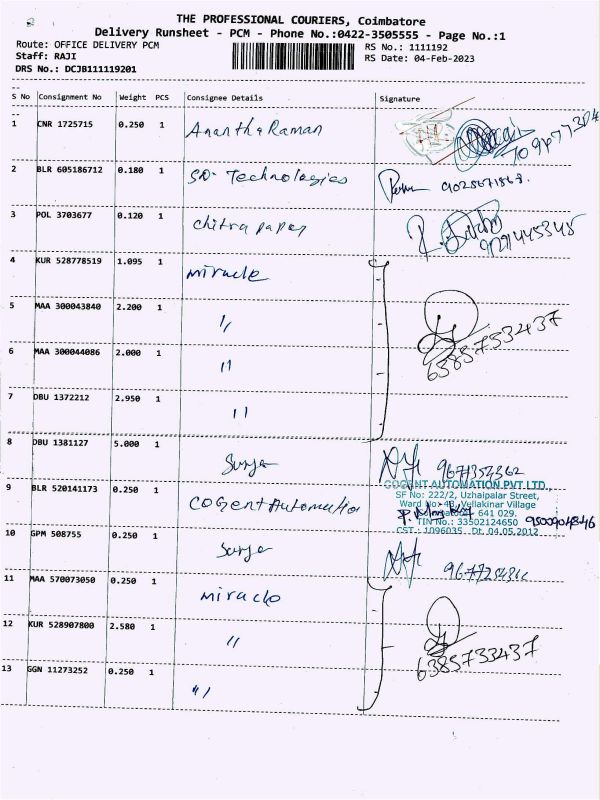 THE PROFESSIONAL COURIERS, Coimbatore
Delivery Runsheet - PCM - Phone No.:0422-3505555 - Page No.:1
Route: OFFICE DELIVERY PCM
RS No.: 1111192
Staff: RAJI
RS Date: 04-Feb-2023
DRS No.: DCJB111119201
S No Consignment No Weight PCS Consignee Details Signature
1 CNR 1725715 0.250 1 Anantha Raman
2 BLR 605186712 0.180 1 SD. Technologies
3 POL 3703677 0.120 1 chitra paper
4 KUR 528778519 1.095 1 miracle
5 MAA 300043840 2.200 1 "
6 MAA 300044086 2.000 1 "
6385733437
7 DBU 1372212 2.950 1 "
8 DBU 1381127 5.000 1 Surya
COGENT AUTOMATION PVT.LTD.,
SF No: 222/2, Uzhaipalar Street,
9 BLR 520141173 0.250 1 Cogent Automation
Ward No:-43, Vellakinar Village
641 029.
TIN No.: 33502124650
CST.: 1096035. Dt. 04.05.2012
10 GPM 508755 0.250 1 Surya
11 MAA 570073050 0.250 1 miraclo
12 KUR 528907800 2.580 1 "
6385733437
13 GGN 11273252 0.250 1 "